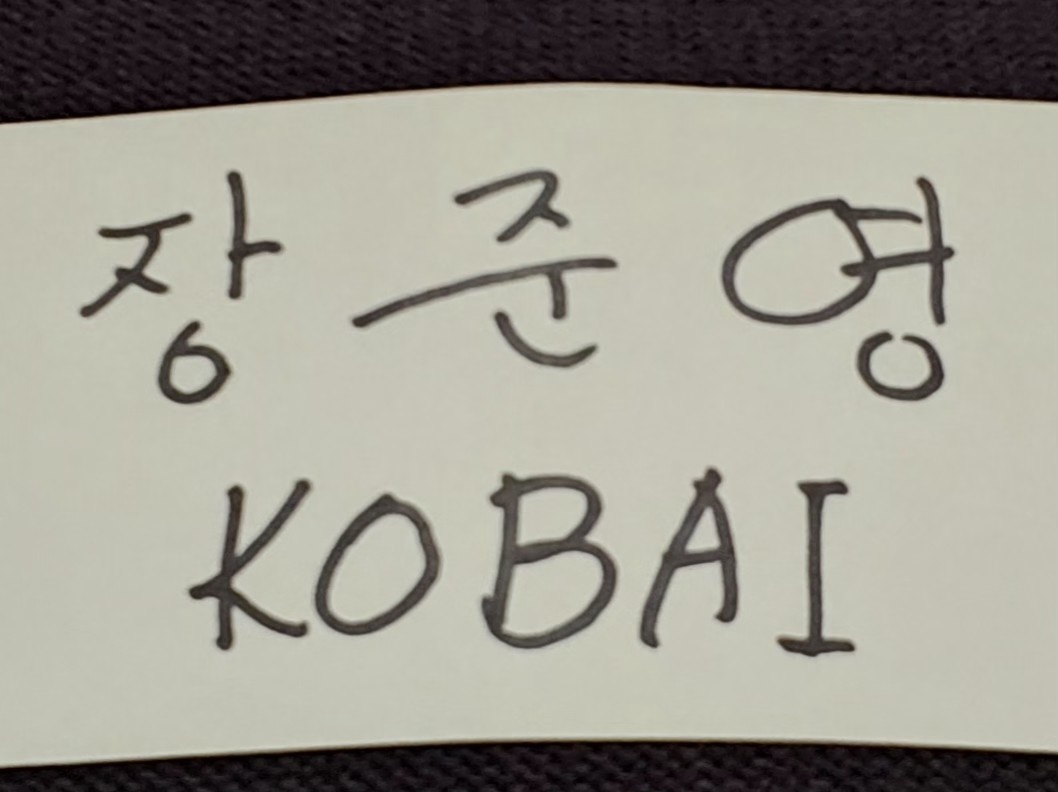 장준영
KOBAI